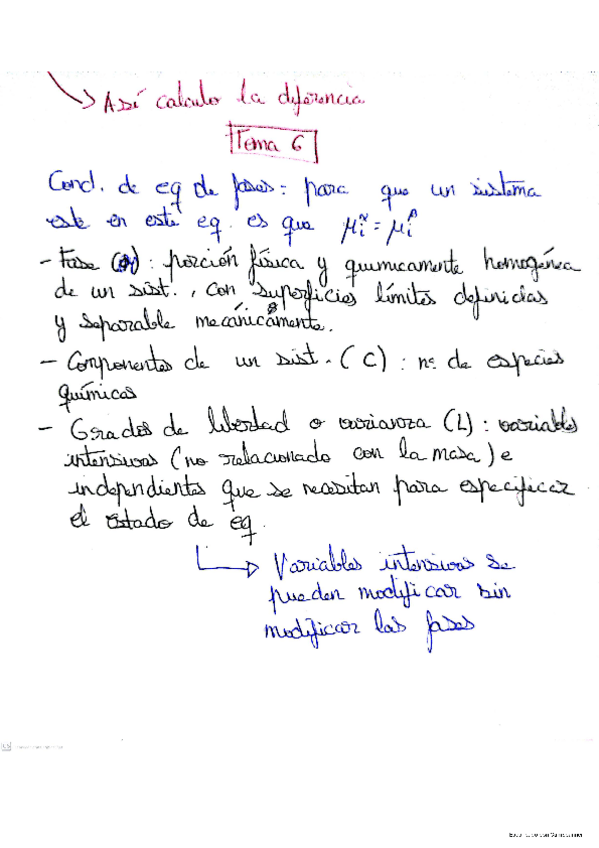 Así calculo la diferencia
Tema 6
Cond. de eq de fases: para que un sistema
este en este eq. es que μᵢ^α = μᵢ^β
- Fase : porción física y quimicamente homogénea
de un sist., con superficies límites definidas
y separable mecánicamente.
- Componentes de un sist. (C) : nº de especies
químicas
- Grados de libertad o varianza (L) : variables
intensivas (no relacionado con la masa) e
independientes que se necesitan para especificar
el estado de eq.
Variables intensivas se
pueden modificar sin
modificar las fases